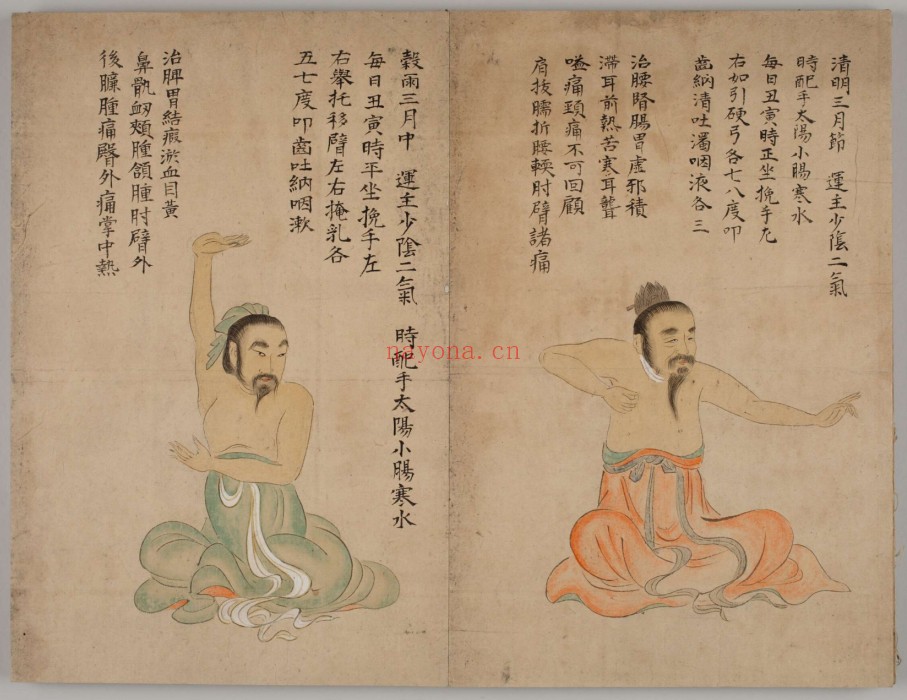 清明三月節　運主少陰二氣
時配手太陽小腸寒水
每日丑寅時正坐挽手左
右如引硬弓各七八度叩
齒納清吐濁咽液各三
治腰腎腸胃虛邪積
滯耳前熱苦寒耳聾
嗌痛頸痛不可回顧
肩拔臑折腰輭肘臂諸痛
穀雨三月中　運主少陰二氣　時配手太陽小腸寒水
每日丑寅時平坐挽手左
右舉托移臂左右掩乳各
五七度叩齒吐納咽漱
治脾胃結瘕淤血目黃
鼻鼽衂頰腫頷腫肘臂外
後臁腫痛臀外痛掌中熱
nayona.cn